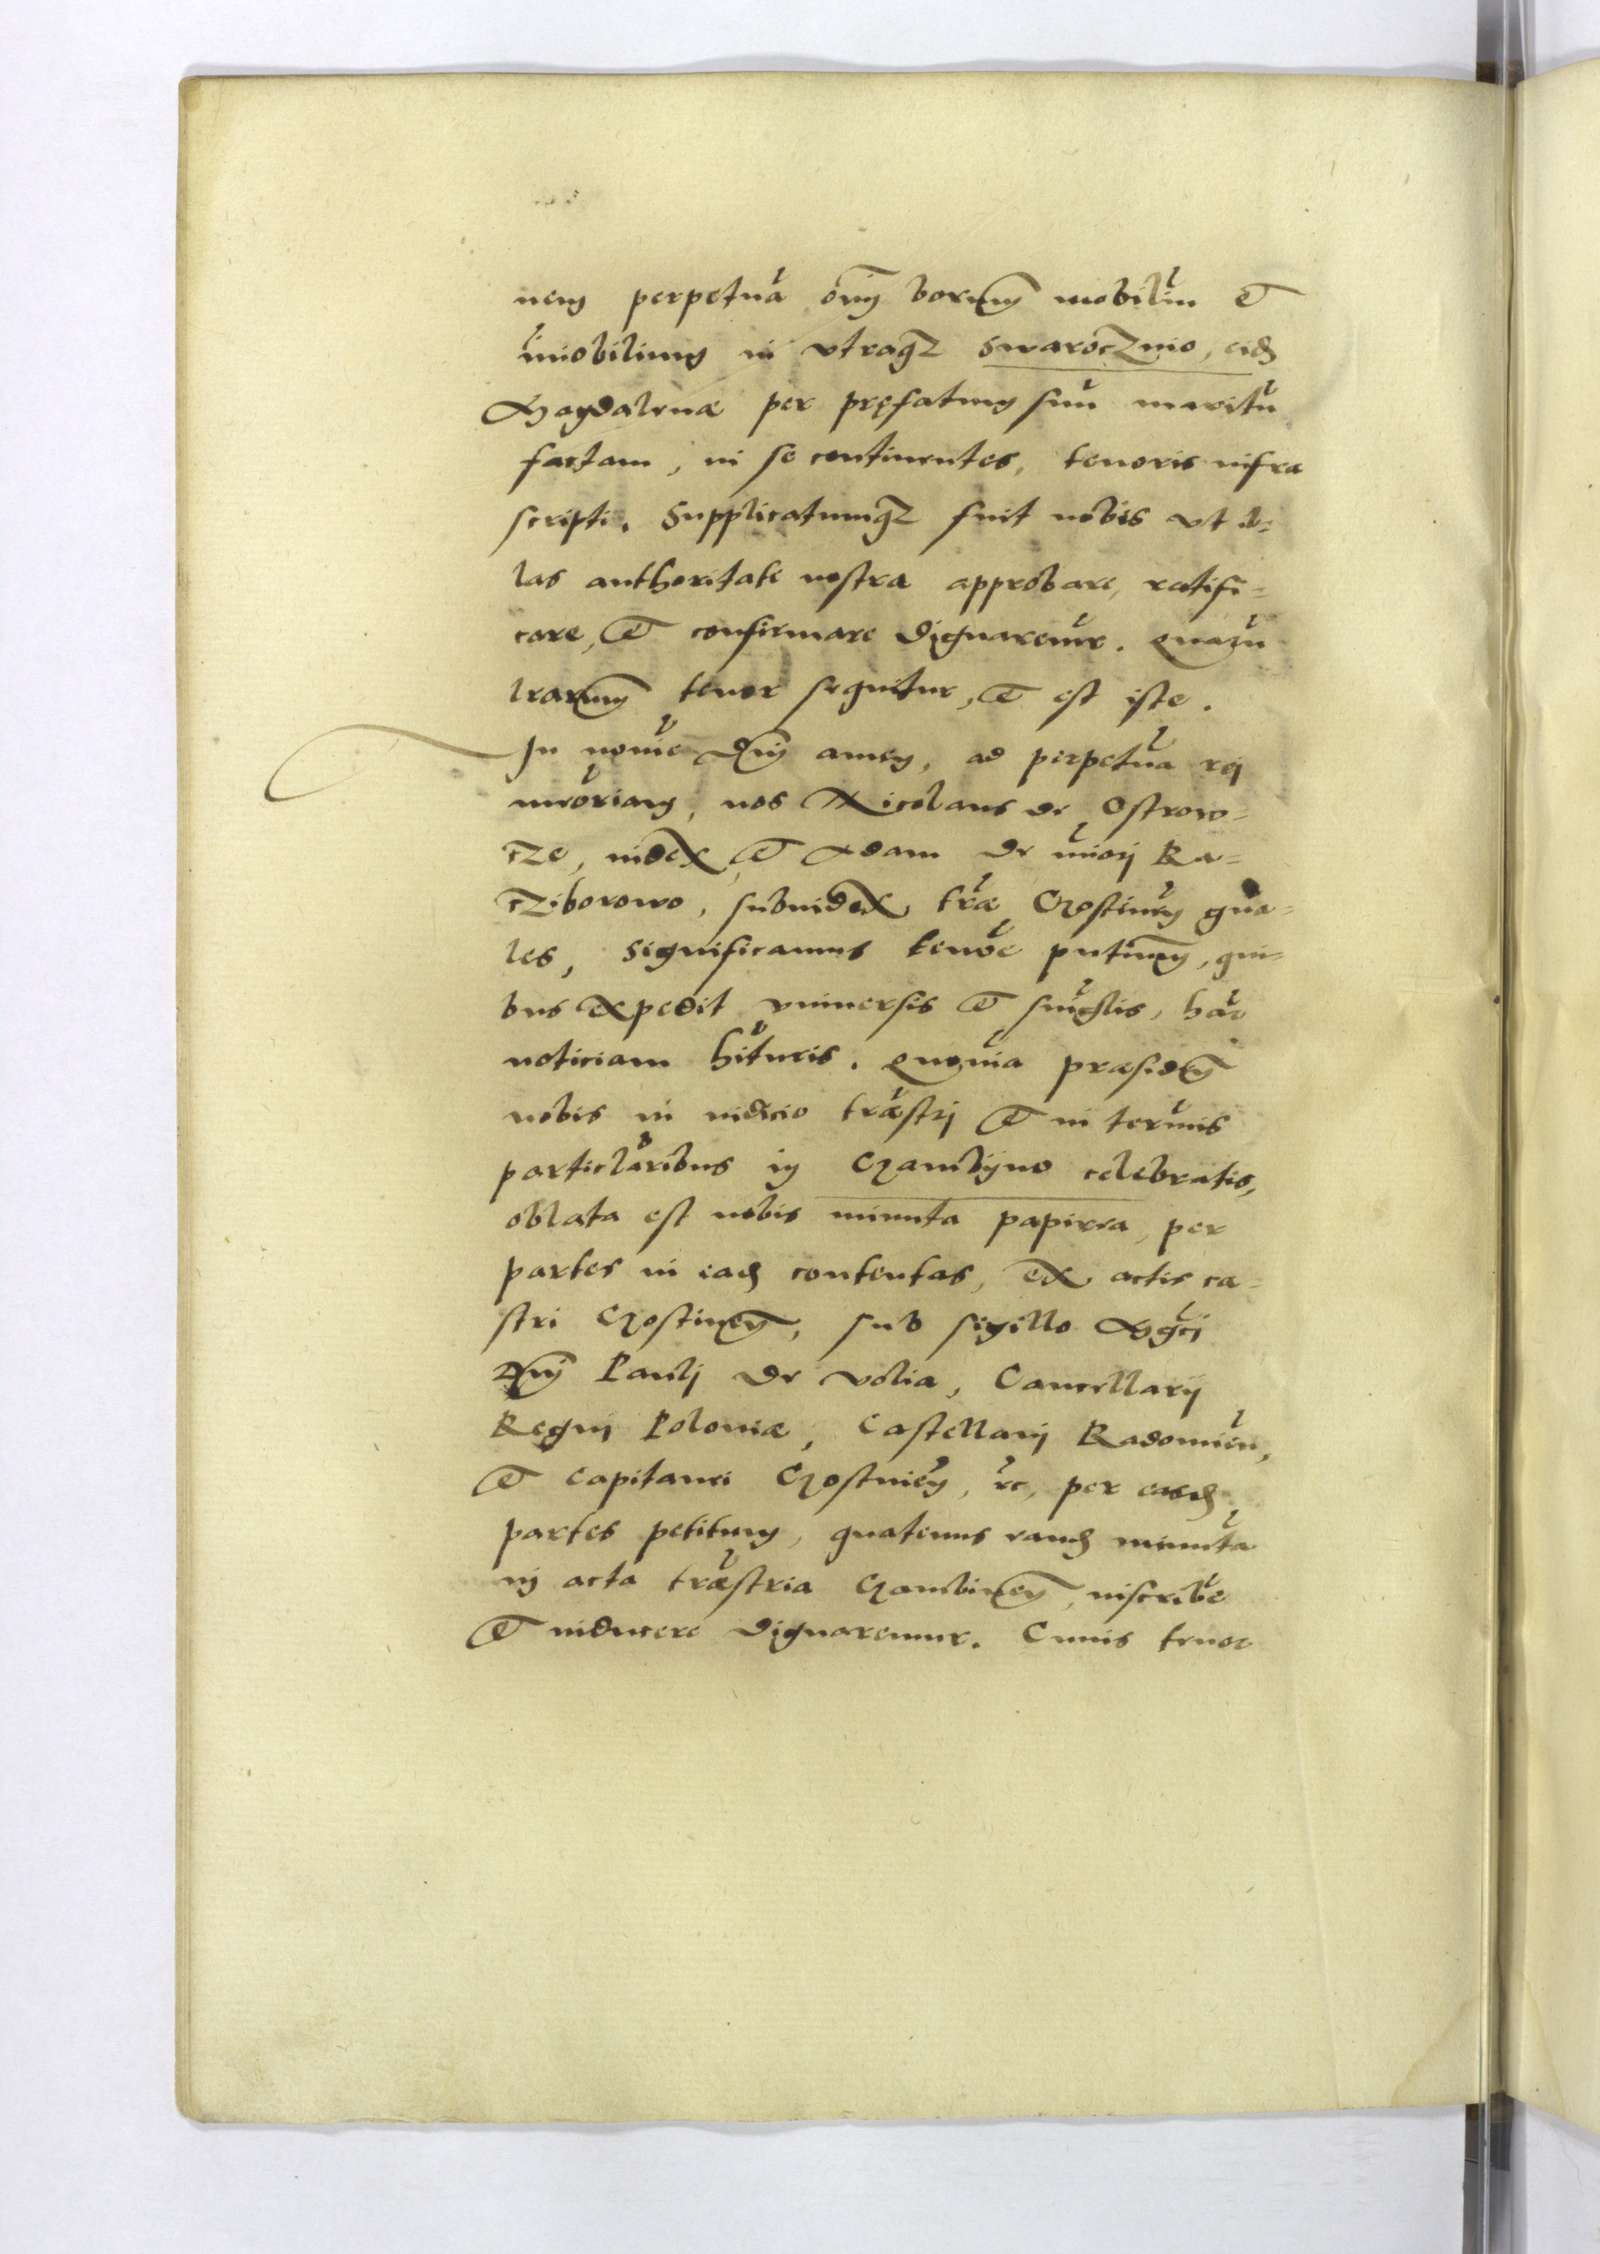 nem perpetuã õnm bonorum mobiliũ et
ĩmobilium in utraqz Swaroczino, eidem
Magdalenæ per pręfatum suũ maritũ
factam, in se continentes, tenoris infra
scripti. Supplicatumqz fuit nobis ut il=
las authoritate nostra approbare, ratifi=
care, et confirmare dignaremur. Quarũ
lrarum tenor sequitur, et est iste.
In noĩe Dnj amen, ad perpetuã rej
mẽoriam, nos Nicolaus de Ostrow=
cze, iudex, et Adam de mĩorj Ra=
cziborowo, subiudex træ Gostinẽn gña=
les, significamus tenõe pñtium, qui=
bus expedit uniuersis et singlis, hãc
noticiam hĩturis. Quoniã præsiden
nobis in iudicio træstrj et in termĩs
particlaribus in Gambijno celebratis,
oblata est nobis minuta papirea, per
partes in eadem contentas, ex actis ca=
stri Gostinen, sub sigillo Mgcj
Dnj Paulj de Volia, Cancellarij
Regnj Poloniæ, Castellanj Radomiẽn,
et Capitanei Gostiniẽn, rc, per easdem
partes petitum, quatenus eandem minutã
in acta træstria Gambinen, inscribẽe
et inducere dignaremur. Cuius tenor